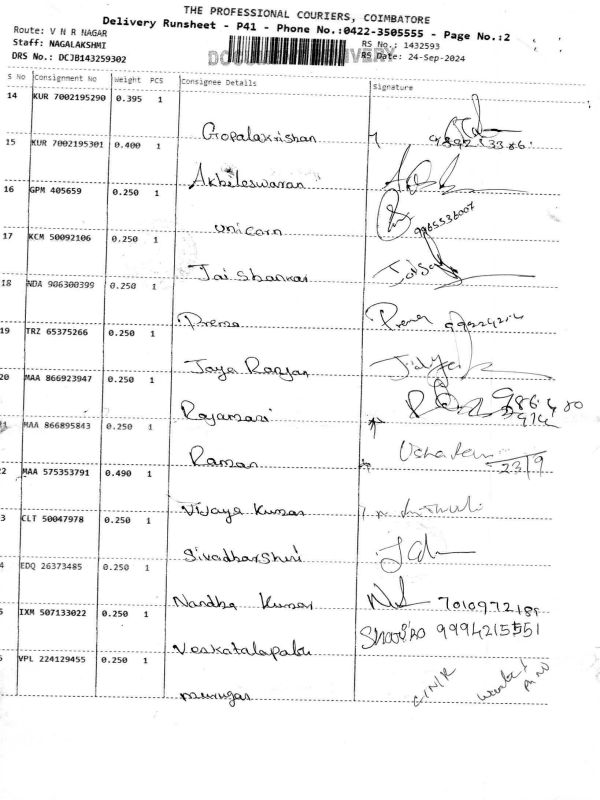 THE PROFESSIONAL COURIERS, COIMBATORE
Delivery Runsheet - P41 - Phone No.:0422-3505555 - Page No.:2
Route: V N R NAGAR
Staff: NAGALAKSHMI
RS No.: 1432593
DRS No.: DCJB143259302
RS Date: 24-Sep-2024
S No Consignment No Weight PCS Consignee Details Signature
14 KUR 7002195290 0.395 1
Gopalakrishnan
15 KUR 7002195301 0.400 1
Akhileswaran
16 GPM 405659 0.250 1
unicorn 9965536007
17 KCM 50092106 0.250 1
Jai Shankar
18 NDA 906300399 0.250 1
Prema Prema
19 TRZ 65375266 0.250 1
Jaya Ranjan
20 MAA 866923947 0.250 1
Rajamani
21 MAA 866895843 0.250 1
Raman 23/9
22 MAA 575353791 0.490 1
Vijaya Kumar
3 CLT 50047978 0.250 1
Sivadharshini
4 EDQ 26373485 0.250 1
Nandha Kumar
5 IXM 507133022 0.250 1
Venkatalapabu 9994215551
6 VPL 224129455 0.250 1
murugan